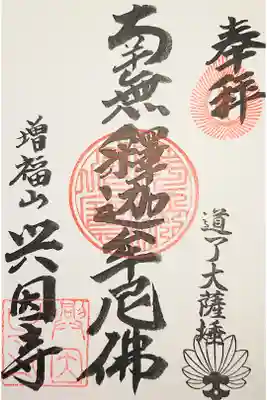 奉拝
道了大薩埵
南無釋迦牟尼佛
增福山
興因寺